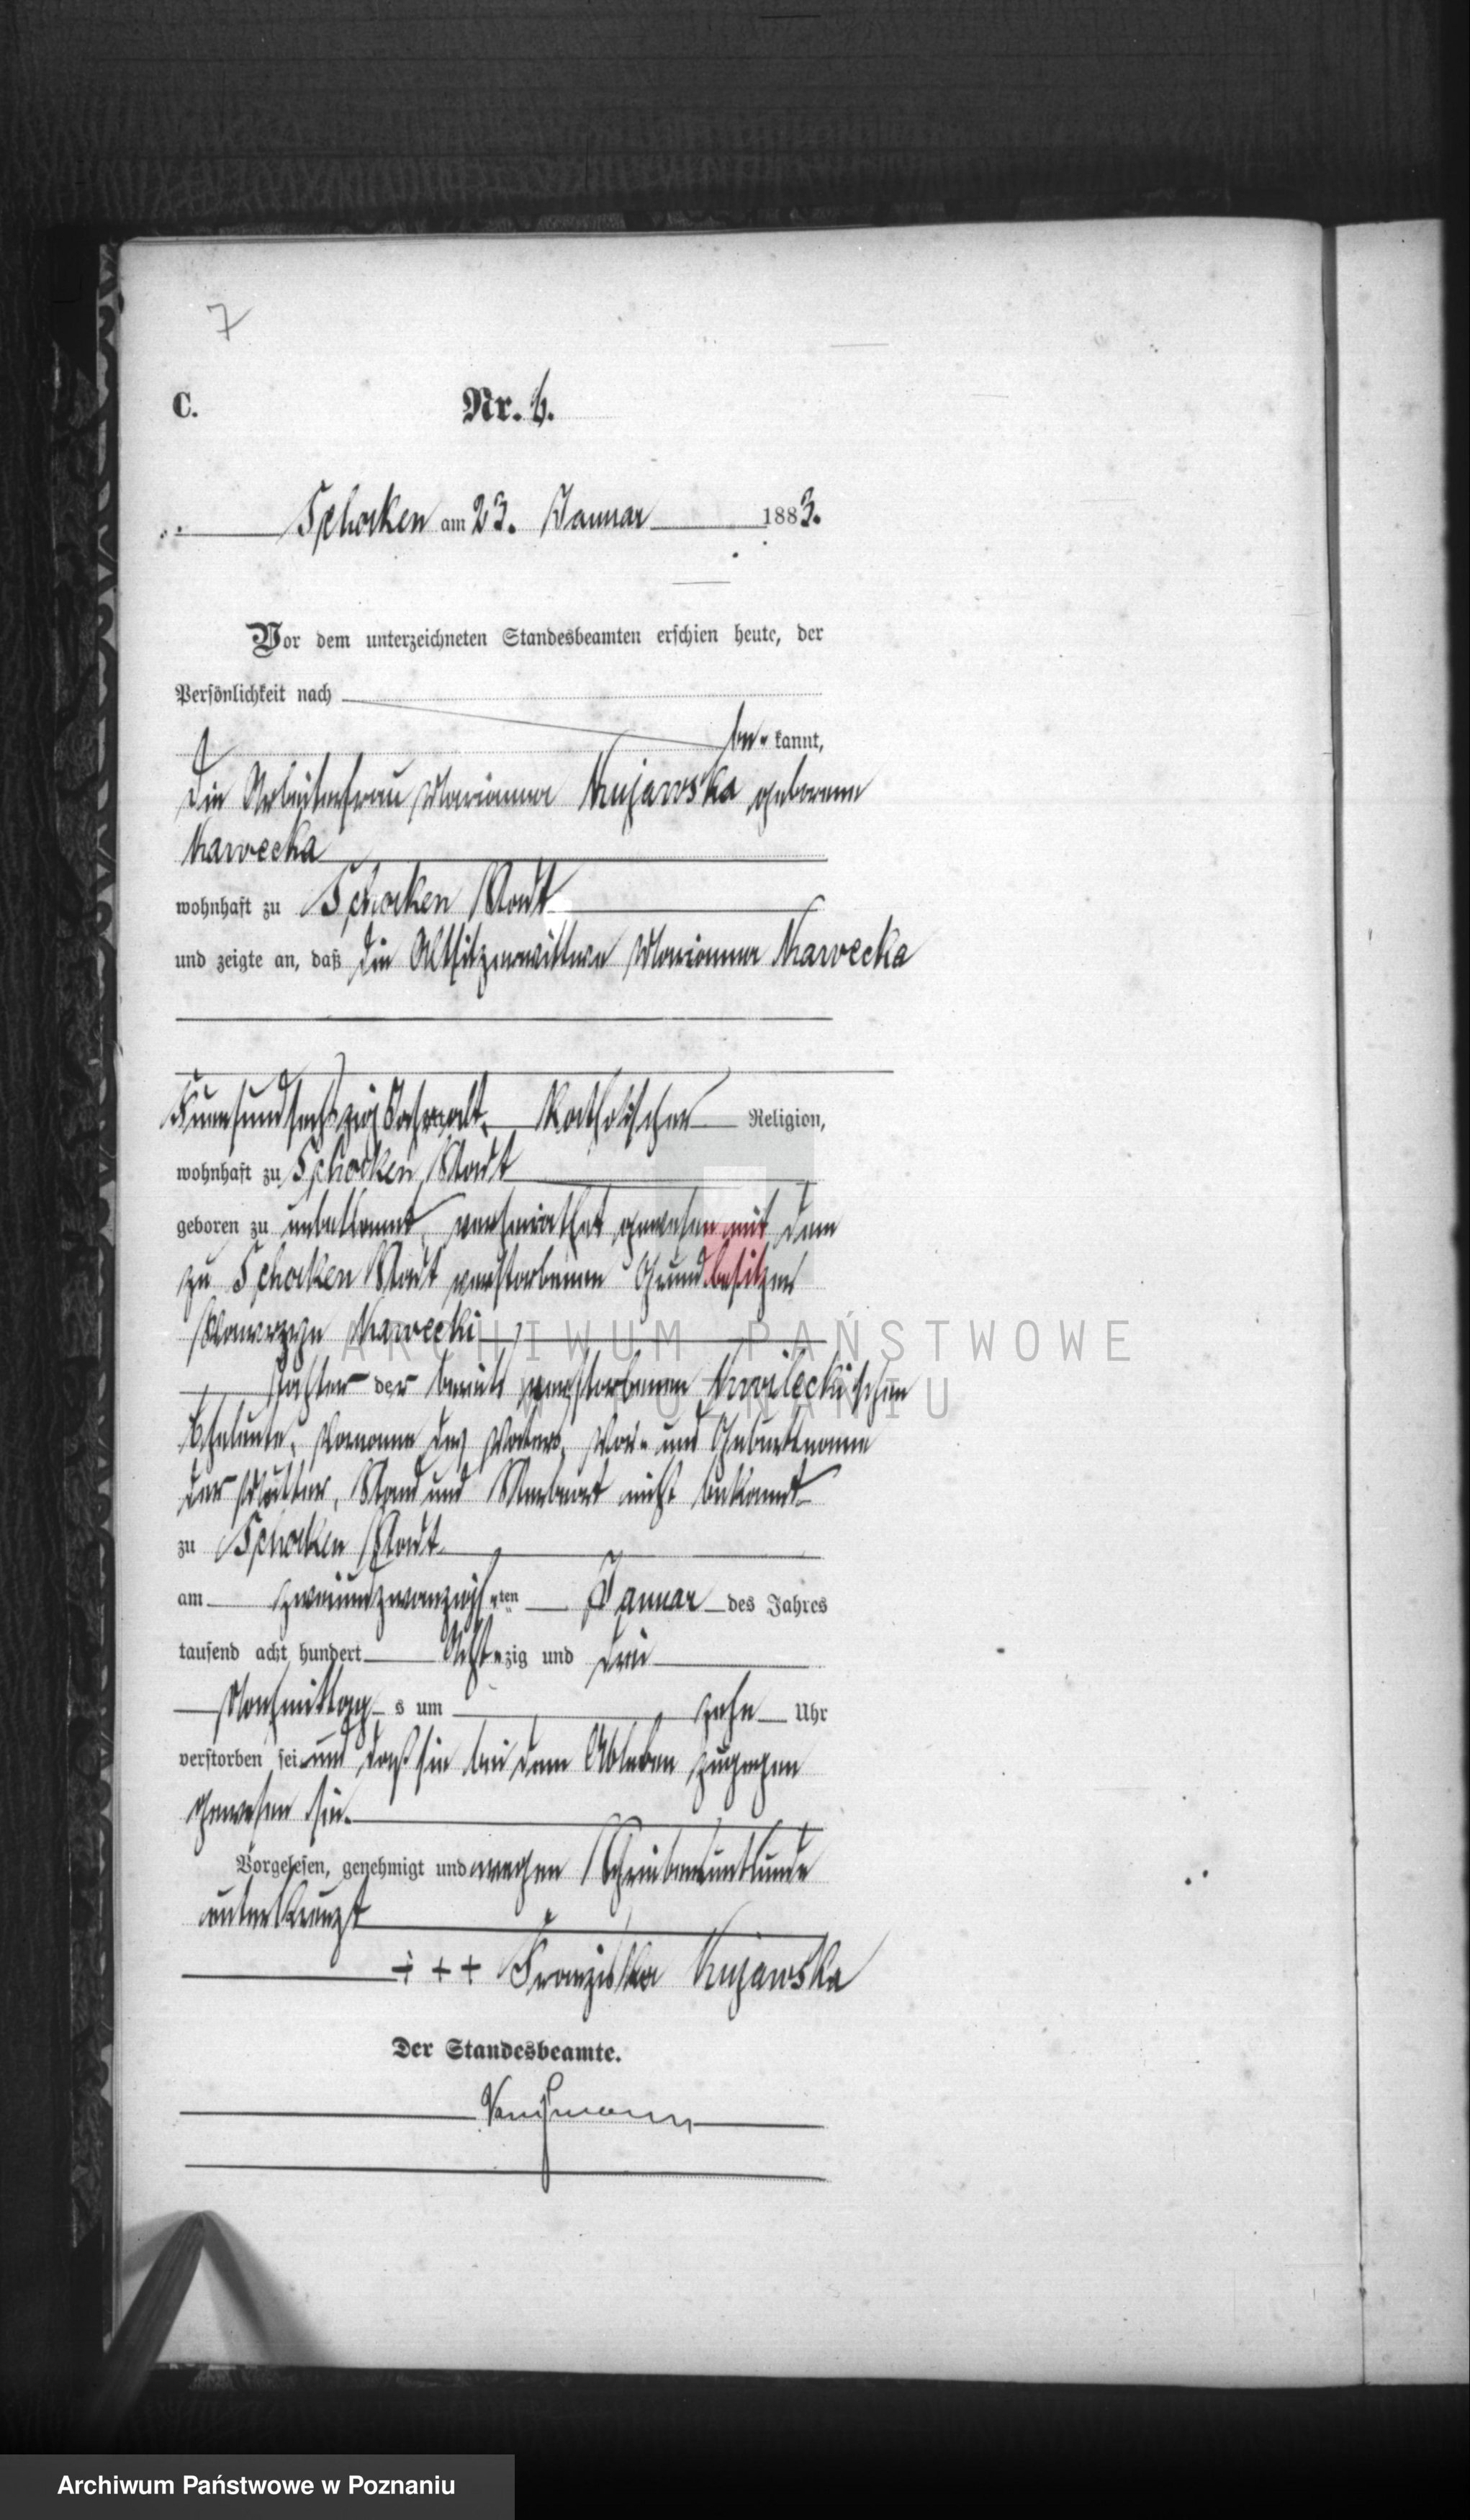 7
C. Nr. 6.
Schocken am 23. Januar 1883.
Vor dem unterzeichneten Standesbeamten erschien heute, der
Persönlichkeit nach
be- kannt,
die Arbeiterfrau Marianna Kujawska geborene
Kawecka
wohnhaft zu Schocken Stadt
und zeigte an, daß die Altsitzerwittwe Marianna Kawecka
Fuenfundsechszig Jahr alt, Katholischer Religion,
wohnhaft zu Schocken Stadt
geboren zu unbekannt, verheirathet gewesen mit dem
zu Schocken Stadt verstorbenen Grundbesitzer
Wawrzyn Kawecki
Tochter der bereits verstorbenen Kwileckischen
Eheleute, Vorname des Vaters, Vor- und Geburtsname
der Mutter, Stand und Wohnort nicht bekannt
zu Schocken Stadt
am zweiundzwanzigsten Januar des Jahres
tausend acht hundert Achtzig und drei
Nachmittags um zehn Uhr
verstorben sei und daß sie bei dem Ableben zugegen
gewesen sei.
Vorgelesen, genehmigt und wegen Schreibensunkunde
unterkreuzt
+ + + Franziska Kujawska
Der Standesbeamte.
ARCHIWUM PAŃSTWOWE
W POZNANIU
Archiwum Państwowe w Poznaniu